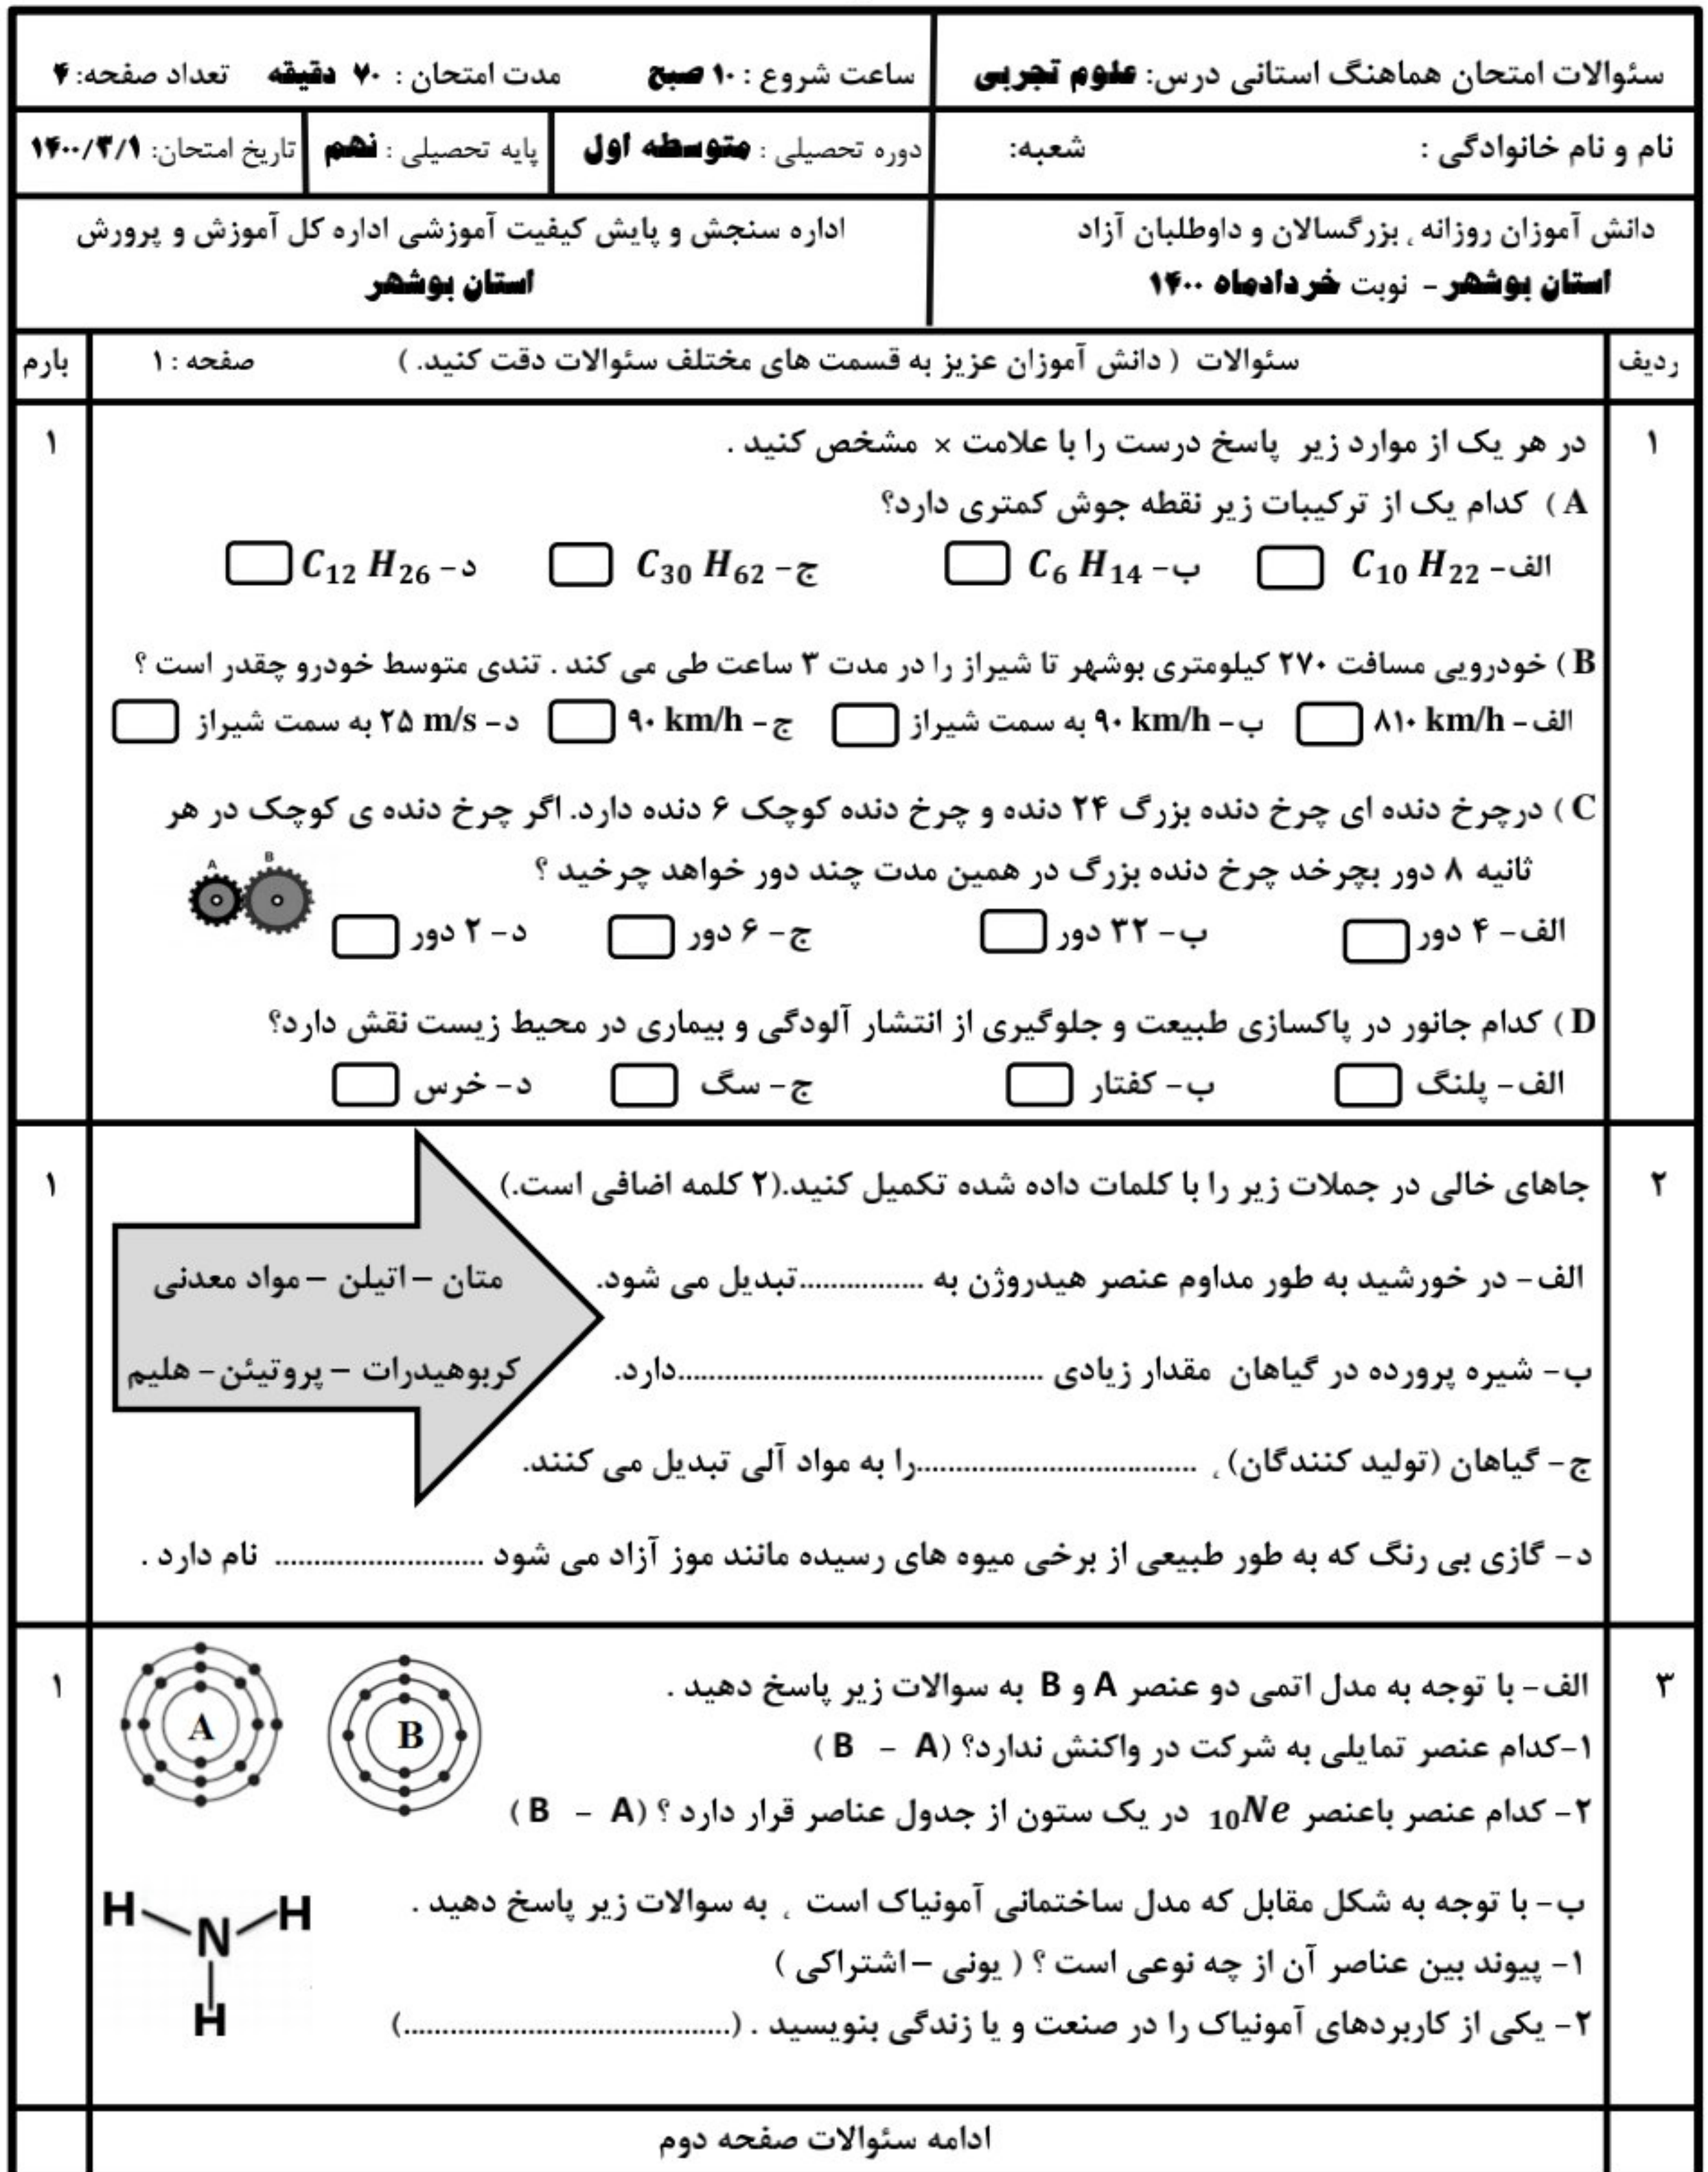 سئوالات امتحان هماهنگ استانی درس: علوم تجربی
ساعت شروع : ۱۰ صبح مدت امتحان : ۷۰ دقیقه تعداد صفحه: ۴
نام و نام خانوادگی : شعبه:
دوره تحصیلی : متوسطه اول
پایه تحصیلی : نهم
تاریخ امتحان: ۱۴۰۰/۳/۱
دانش آموزان روزانه ، بزرگسالان و داوطلبان آزاد
استان بوشهر - نوبت خردادماه ۱۴۰۰
اداره سنجش و پایش کیفیت آموزشی اداره کل آموزش و پرورش
استان بوشهر
ردیف
سئوالات ( دانش آموزان عزیز به قسمت های مختلف سئوالات دقت کنید. ) صفحه : ۱
بارم
۱
در هر یک از موارد زیر پاسخ درست را با علامت × مشخص کنید .
۱
A ) کدام یک از ترکیبات زیر نقطه جوش کمتری دارد؟
الف- C10 H22 ب- C6 H14 ج- C30 H62 د- C12 H26
B ) خودرویی مسافت ۲۷۰ کیلومتری بوشهر تا شیراز را در مدت ۳ ساعت طی می کند . تندی متوسط خودرو چقدر است ؟
الف- ۸۱۰ km/h ب- ۹۰ km/h به سمت شیراز ج- ۹۰ km/h د- ۲۵ m/s به سمت شیراز
C ) درچرخ دنده ای چرخ دنده بزرگ ۲۴ دنده و چرخ دنده کوچک ۶ دنده دارد. اگر چرخ دنده ی کوچک در هر
ثانیه ۸ دور بچرخد چرخ دنده بزرگ در همین مدت چند دور خواهد چرخید ؟
A B
الف- ۴ دور ب- ۳۲ دور ج- ۶ دور د- ۲ دور
D ) کدام جانور در پاکسازی طبیعت و جلوگیری از انتشار آلودگی و بیماری در محیط زیست نقش دارد؟
الف- پلنگ ب- کفتار ج- سگ د- خرس
۲
جاهای خالی در جملات زیر را با کلمات داده شده تکمیل کنید.(۲ کلمه اضافی است.)
۱
الف- در خورشید به طور مداوم عنصر هیدروژن به ................تبدیل می شود.
ب- شیره پرورده در گیاهان مقدار زیادی ...............................................دارد.
ج- گیاهان (تولید کنندگان) ، ....................................را به مواد آلی تبدیل می کنند.
د- گازی بی رنگ که به طور طبیعی از برخی میوه های رسیده مانند موز آزاد می شود ........................... نام دارد .
متان – اتیلن – مواد معدنی
کربوهیدرات – پروتیئن- هلیم
۳
الف- با توجه به مدل اتمی دو عنصر A و B به سوالات زیر پاسخ دهید .
۱
۱-کدام عنصر تمایلی به شرکت در واکنش ندارد؟ (A - B )
۲- کدام عنصر باعنصر 10Ne در یک ستون از جدول عناصر قرار دارد ؟ (A - B )
A
B
ب- با توجه به شکل مقابل که مدل ساختمانی آمونیاک است ، به سوالات زیر پاسخ دهید .
۱- پیوند بین عناصر آن از چه نوعی است ؟ ( یونی – اشتراکی )
۲- یکی از کاربردهای آمونیاک را در صنعت و یا زندگی بنویسید . (..........................................)
H H
N
H
ادامه سئوالات صفحه دوم